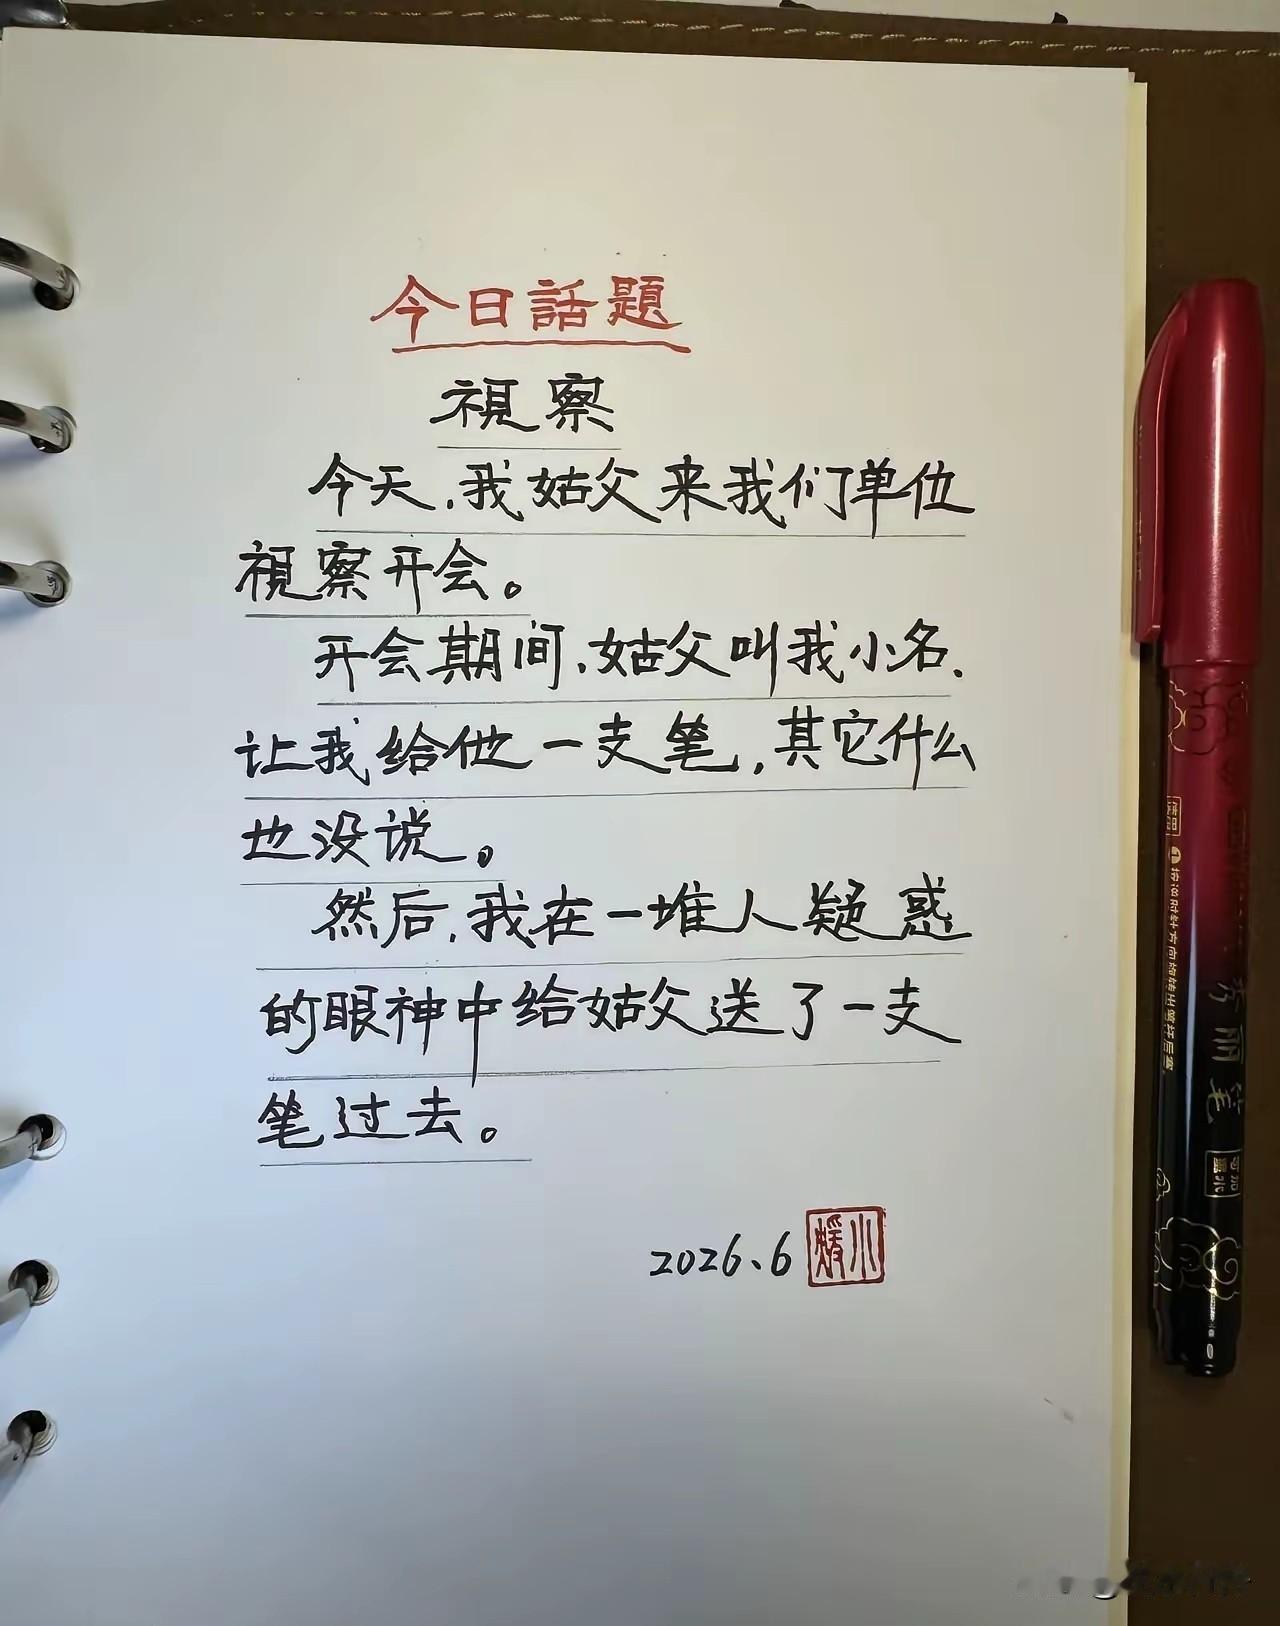 今日話題
視察
今天,我姑父来我们单位
視察开会。
开会期间,姑父叫我小名,
让我给他一支笔,其它什么
也没说。
然后,我在一堆人疑惑
的眼神中给姑父送了一支
笔过去。
2026、6
小暖
秀丽笔
可加墨水